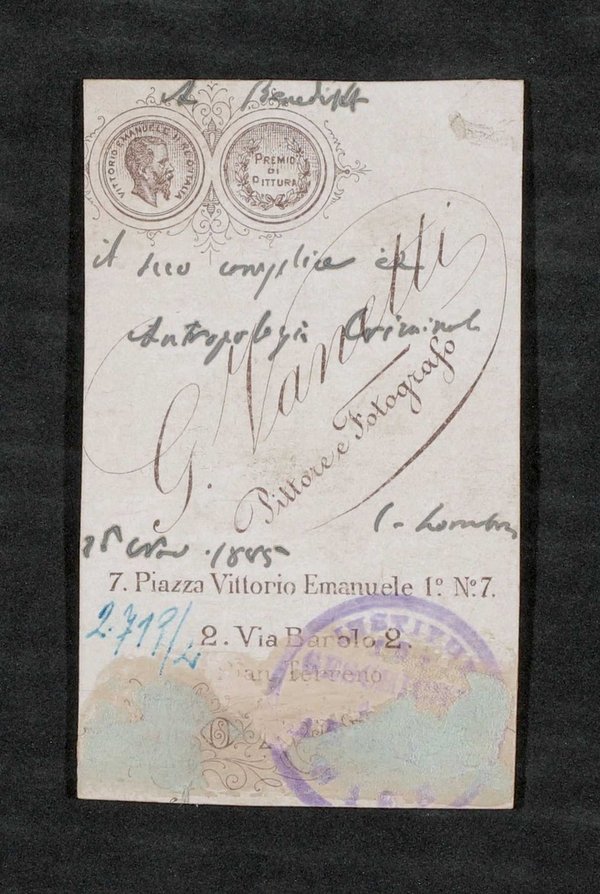 A Benedikt
VITTORIO EMANUELE II RE D'ITALIA
PREMIO
DI
PITTURA
il suo complice in
Antropologia Criminale
G. Vanetti
Pittore e Fotografo
C. Lombroso
1885
7. Piazza Vittorio Emanuele 1º Nº 7.
2.719/2
2. Via Barolo 2.
Pian Terreno